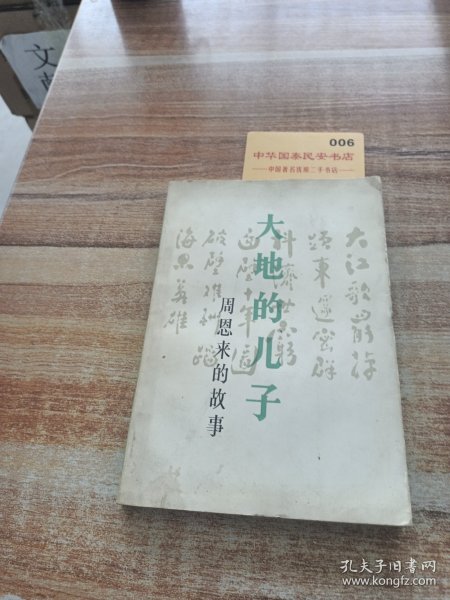 文
006
中华国泰民安书店
中国著名连锁二手书店
大地的儿子
周恩来的故事
大江歌罷掉
頭東邃密群
科濟世窮
面壁十年圖
破壁難酬蹈
海亦英雄
孔夫子旧书网
www.kongfz.com